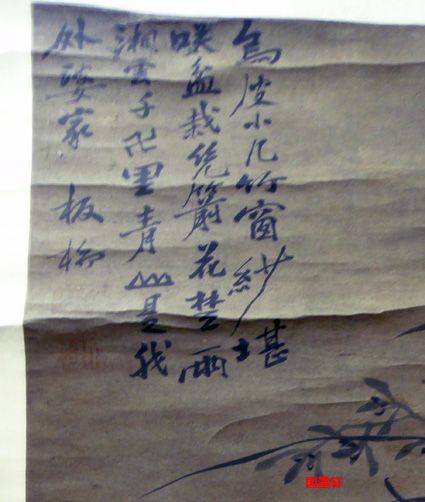 烏皮小几竹窗紗堪
咲盆栽幾箭花楚雨
湘雲千卍里青山是我
外婆家 板橋